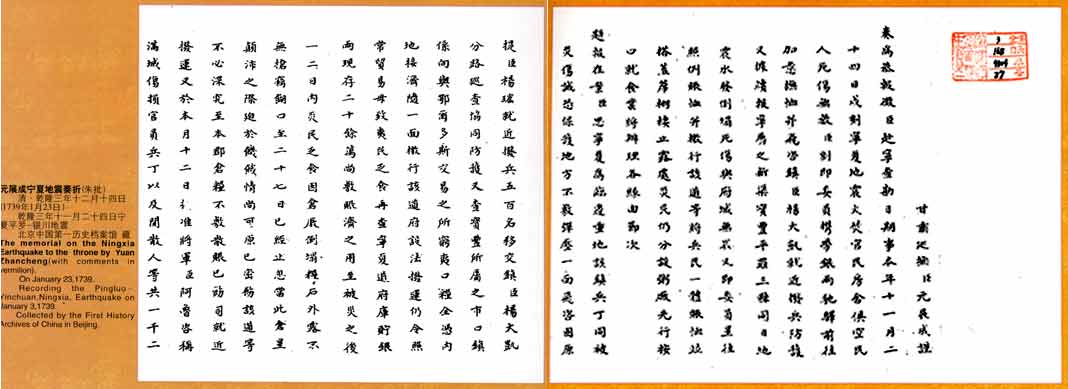 甘肅巡撫臣元展成謹
奏為恭報微臣赴寧查勘日期事本年十一月二
十四日戌刻寧夏地震火焚官民房舍俱空民
人死傷無數臣刻即委員攜帶銀兩馳驛前往
加意撫恤并飛咨鎮臣楊大凱就近撥兵防護
又據續報寧屬之新渠寶豐平羅三縣同日地
震水發倒塌死傷與府城無異又即委員星往
照例賑恤并檄行該道等將兵民一體賑恤並
搭蓋蓆棚棲止露處災民仍分設粥廠先行按
口就食業將辦理各緣由節次
題報在案臣思寧夏為臨邊重地該鎮兵丁同被
災傷誠恐保護地方不敷彈壓一面飛咨固原
提臣楊瑊就近撥兵五百名移交鎮臣楊大凱
分路巡查協同防護又查寶豐所屬之市口鎮
係向與鄂爾多斯交易之所窮夷口糧全憑內
地接濟隨一面檄行該道府設法攢運仍令照
常貿易毋致夷民乏食再查寧夏道府庫貯銀
兩現存二十餘萬尚敷賑濟之用至被災之後
一二日內災民乏食因倉廒倒塌糧石外露不
無搶竊餬口至二十七日已經止息當此倉皇
顛沛之際迫於饑餓情尚可原已密飭該道等
不必深究至本郡倉糧不敷散賑已飭司就近
撥運又於本月十二日准將軍臣阿魯咨稱
滿城傷損官員兵丁以及閒散人等共一千二
元展成宁夏地震奏折(朱批)
清·乾隆三年十二月十四日
(1739年1月23日)
乾隆三年十一月二十四日宁
夏平罗-银川地震
北京中国第一历史档案馆 藏
The memorial on the Ningxia
Earthquake to the throne by Yuan
Zhancheng(with comments in
vermilion).
On January 23,1739.
Recording the Pingluo-
Yinchuan,Ningxia, Earthquake on
January 3,1739.
Collected by the First History
Archives of China in Beijing.